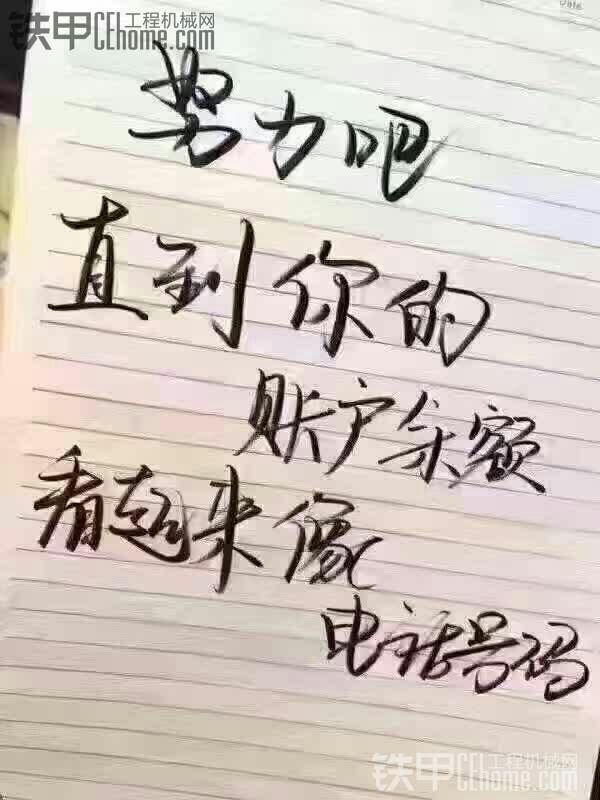 铁甲 工程机械网
CEhome.com
努力吧
直到你的
账户余额
看起来像
电话号码
铁甲 工程机械网
CEhome.com